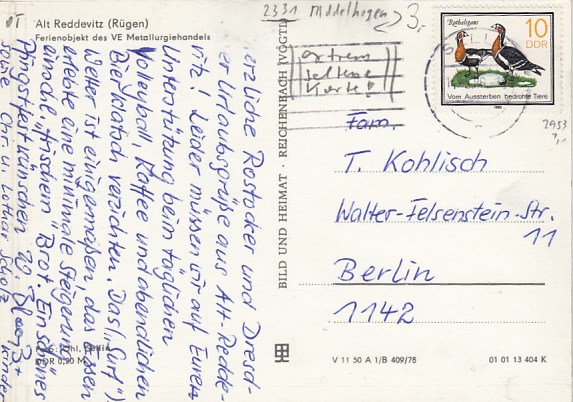 DT
2331 Middelhagen
3,-
Alt Reddevitz (Rügen)
Ferienobjekt des VE Metallurgiehandels
Rothalsgans
10
DDR
Vom Aussterben bedrohte Tiere
extrem
seltene
Karte!
BILD UND HEIMAT REICHENBACH (VOGTL
Fam.
T. Kohlisch
Walter-Felsenstein-Str.
11
Berlin
1142
Rostocker und Dresd-
er Urlaubsgrüße aus Alt-Redde-
vitz! Leider müssen wir auf Eure
Unterstützung beim täglichen
Volleyball, Kaffee und abendlichen
Bierklatsch verzichten. Das
Wetter ist einigermaßen, das Essen
erlebte eine minimale Steigerung
einschl. frischem Brot. Ein schönes
Pfingstfest wünschen
sowie Chr. u. Lothar Scholz
Kinder
DDR 0,20 M
V 11 50 A 1/B 409/78
01 01 13 404 K